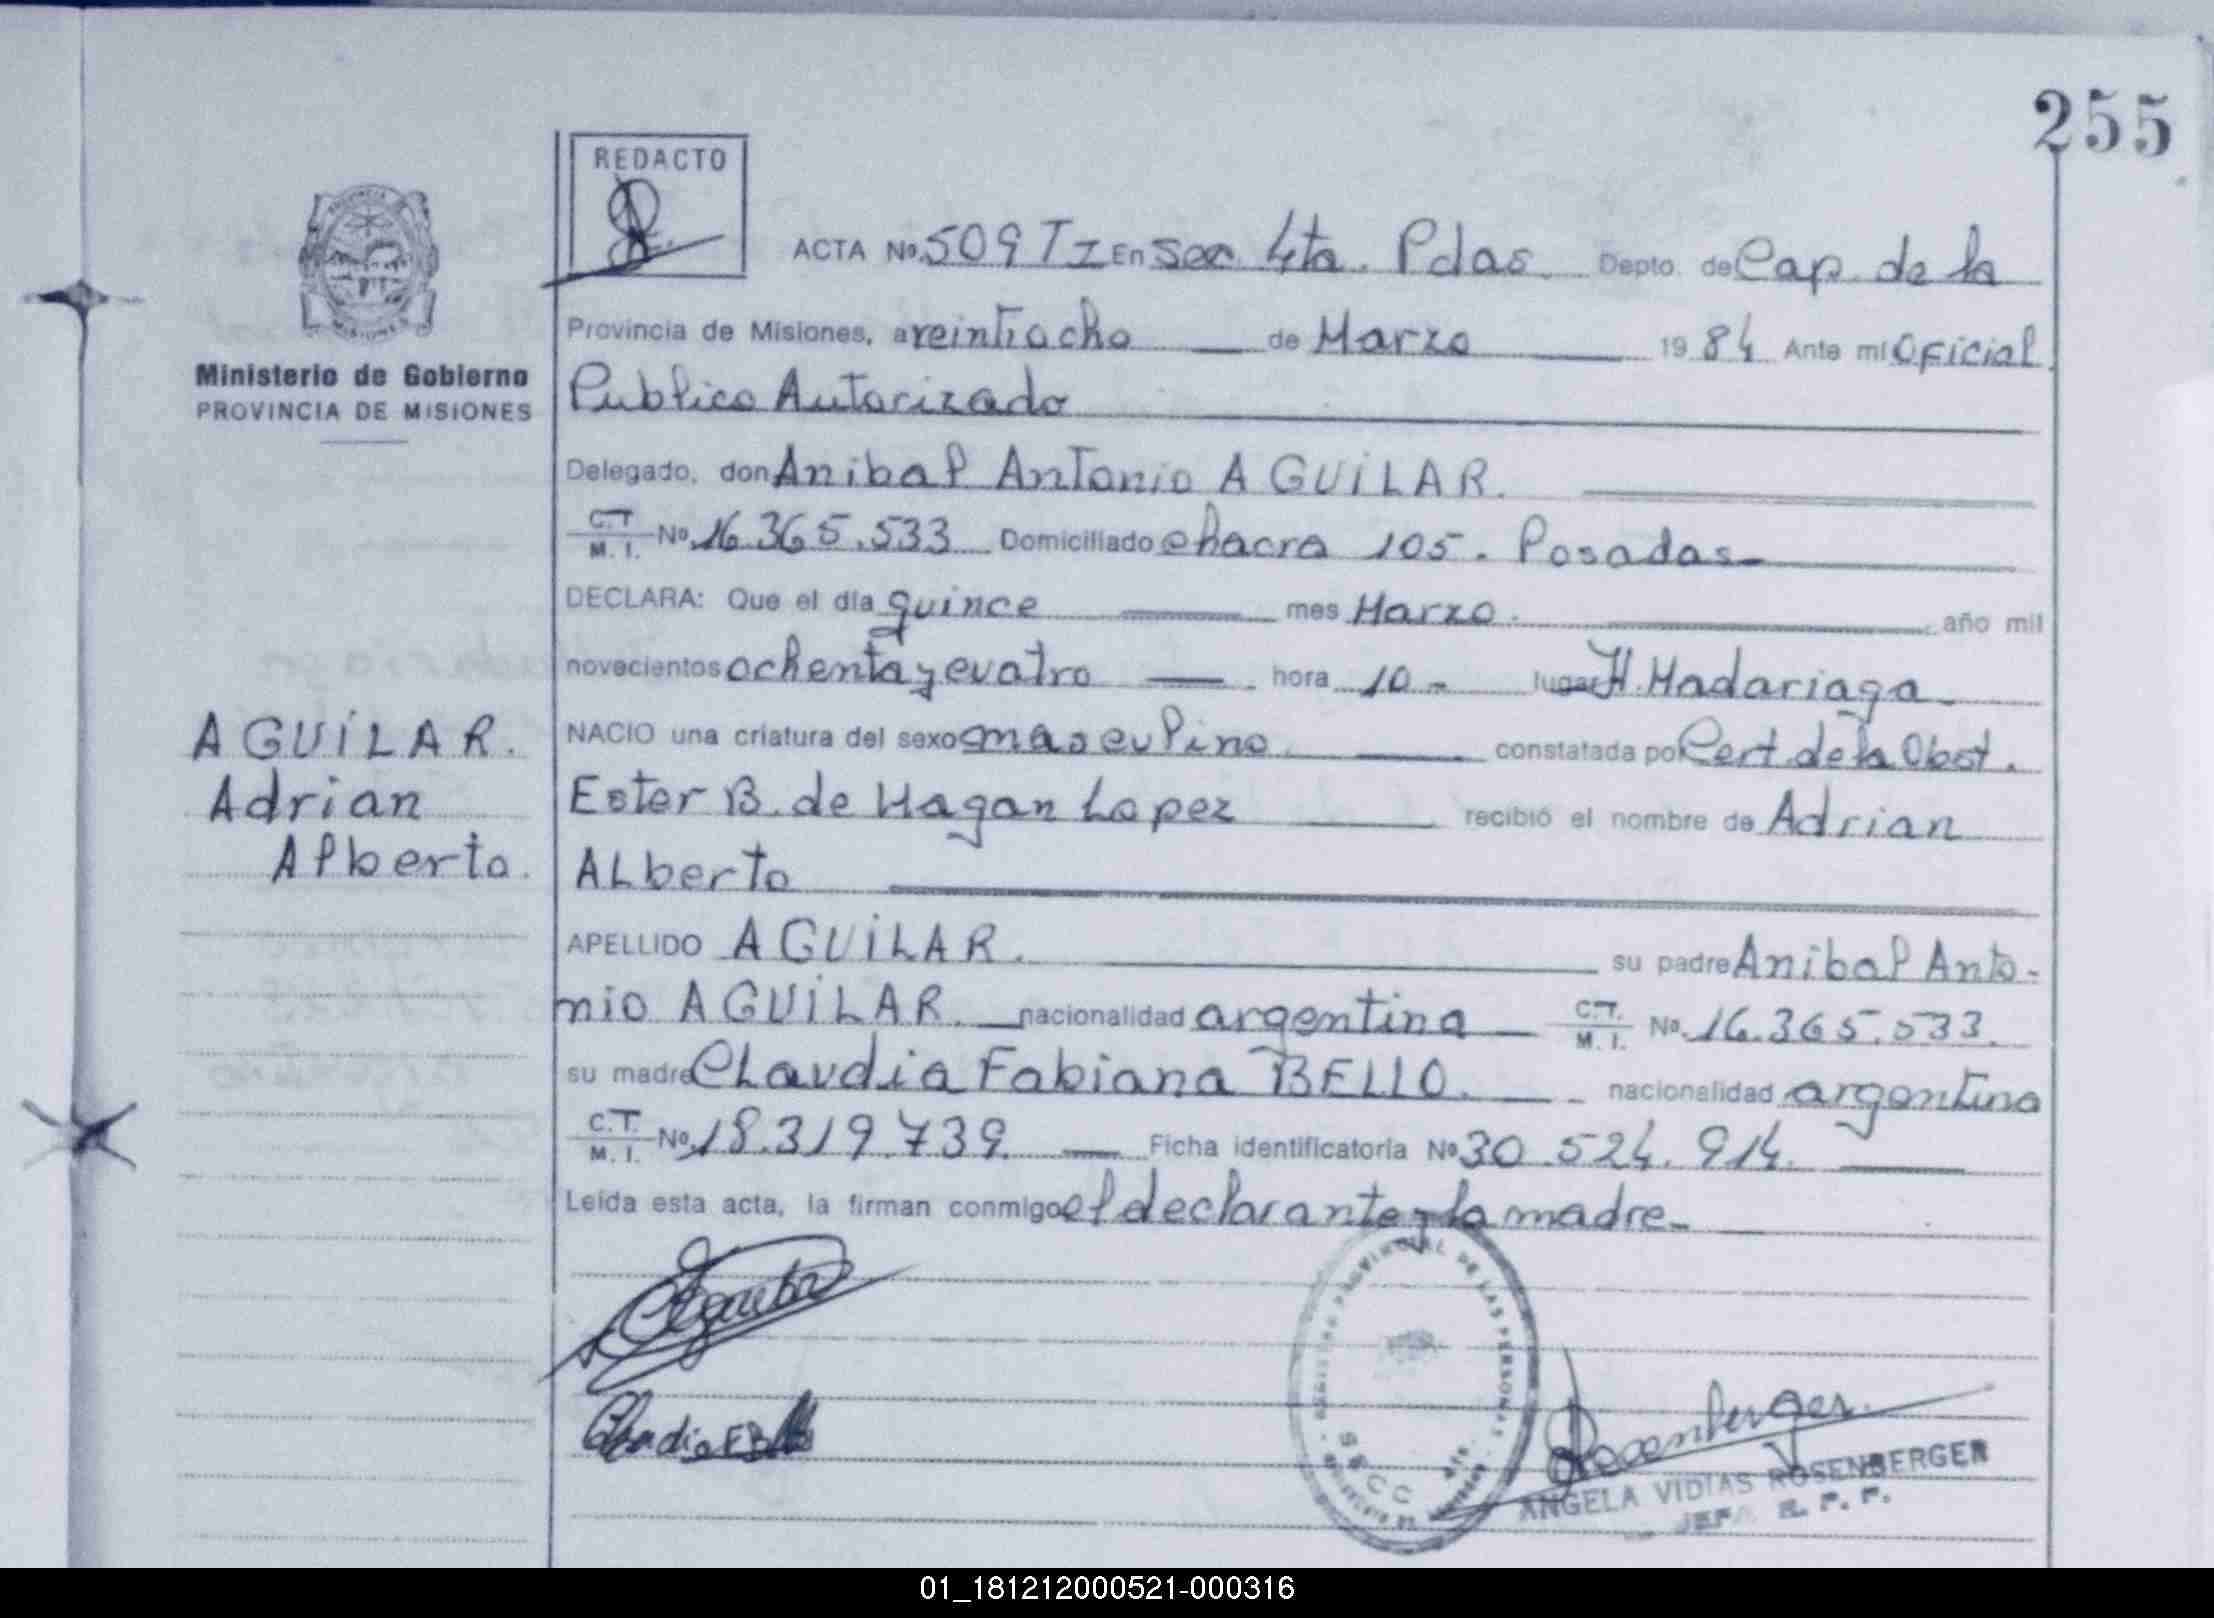 255
REDACTO
ACTA No. 509 T I En Secc 4ta. Pdas. Depto. de Cap. de la
Provincia de Misiones, a veintiocho de Marzo 1984 Ante mi Oficial
Ministerio de Gobierno
PROVINCIA DE MISIONES
Publico Autorizado
Delegado, don Anibal Antonio AGUILAR.
C.T. M. I. No. 16.365.533 Domiciliado chacra 105. Posadas
DECLARA: Que el día quince mes Marzo. año mil
novecientos ochenta y cuatro hora 10 lugar H. Madariaga
AGUILAR.
Adrian
Alberto.
NACIO una criatura del sexo masculino constatada por Cert. de la Obst.
Ester B. de Hagan Lopez recibió el nombre de Adrian
ALberto
APELLIDO AGUILAR. su padre Anibal Anto-
nio AGUILAR. nacionalidad argentina C.T. M. I. No. 16.365.533.
su madre CLaudia Fabiana BELLO. nacionalidad argentina
C.T. M. I. No. 18.319.739. Ficha identificatoria No 30.524.914.
Leída esta acta, la firman conmigo el declarante y la madre
REGISTRO PROVINCIAL DE LAS PERSONAS
SECC 4ta.
Claudia F B
Rosenberger
ANGELA VIDIAS ROSENBERGER
JEFA R. P. P.
01_181212000521-000316